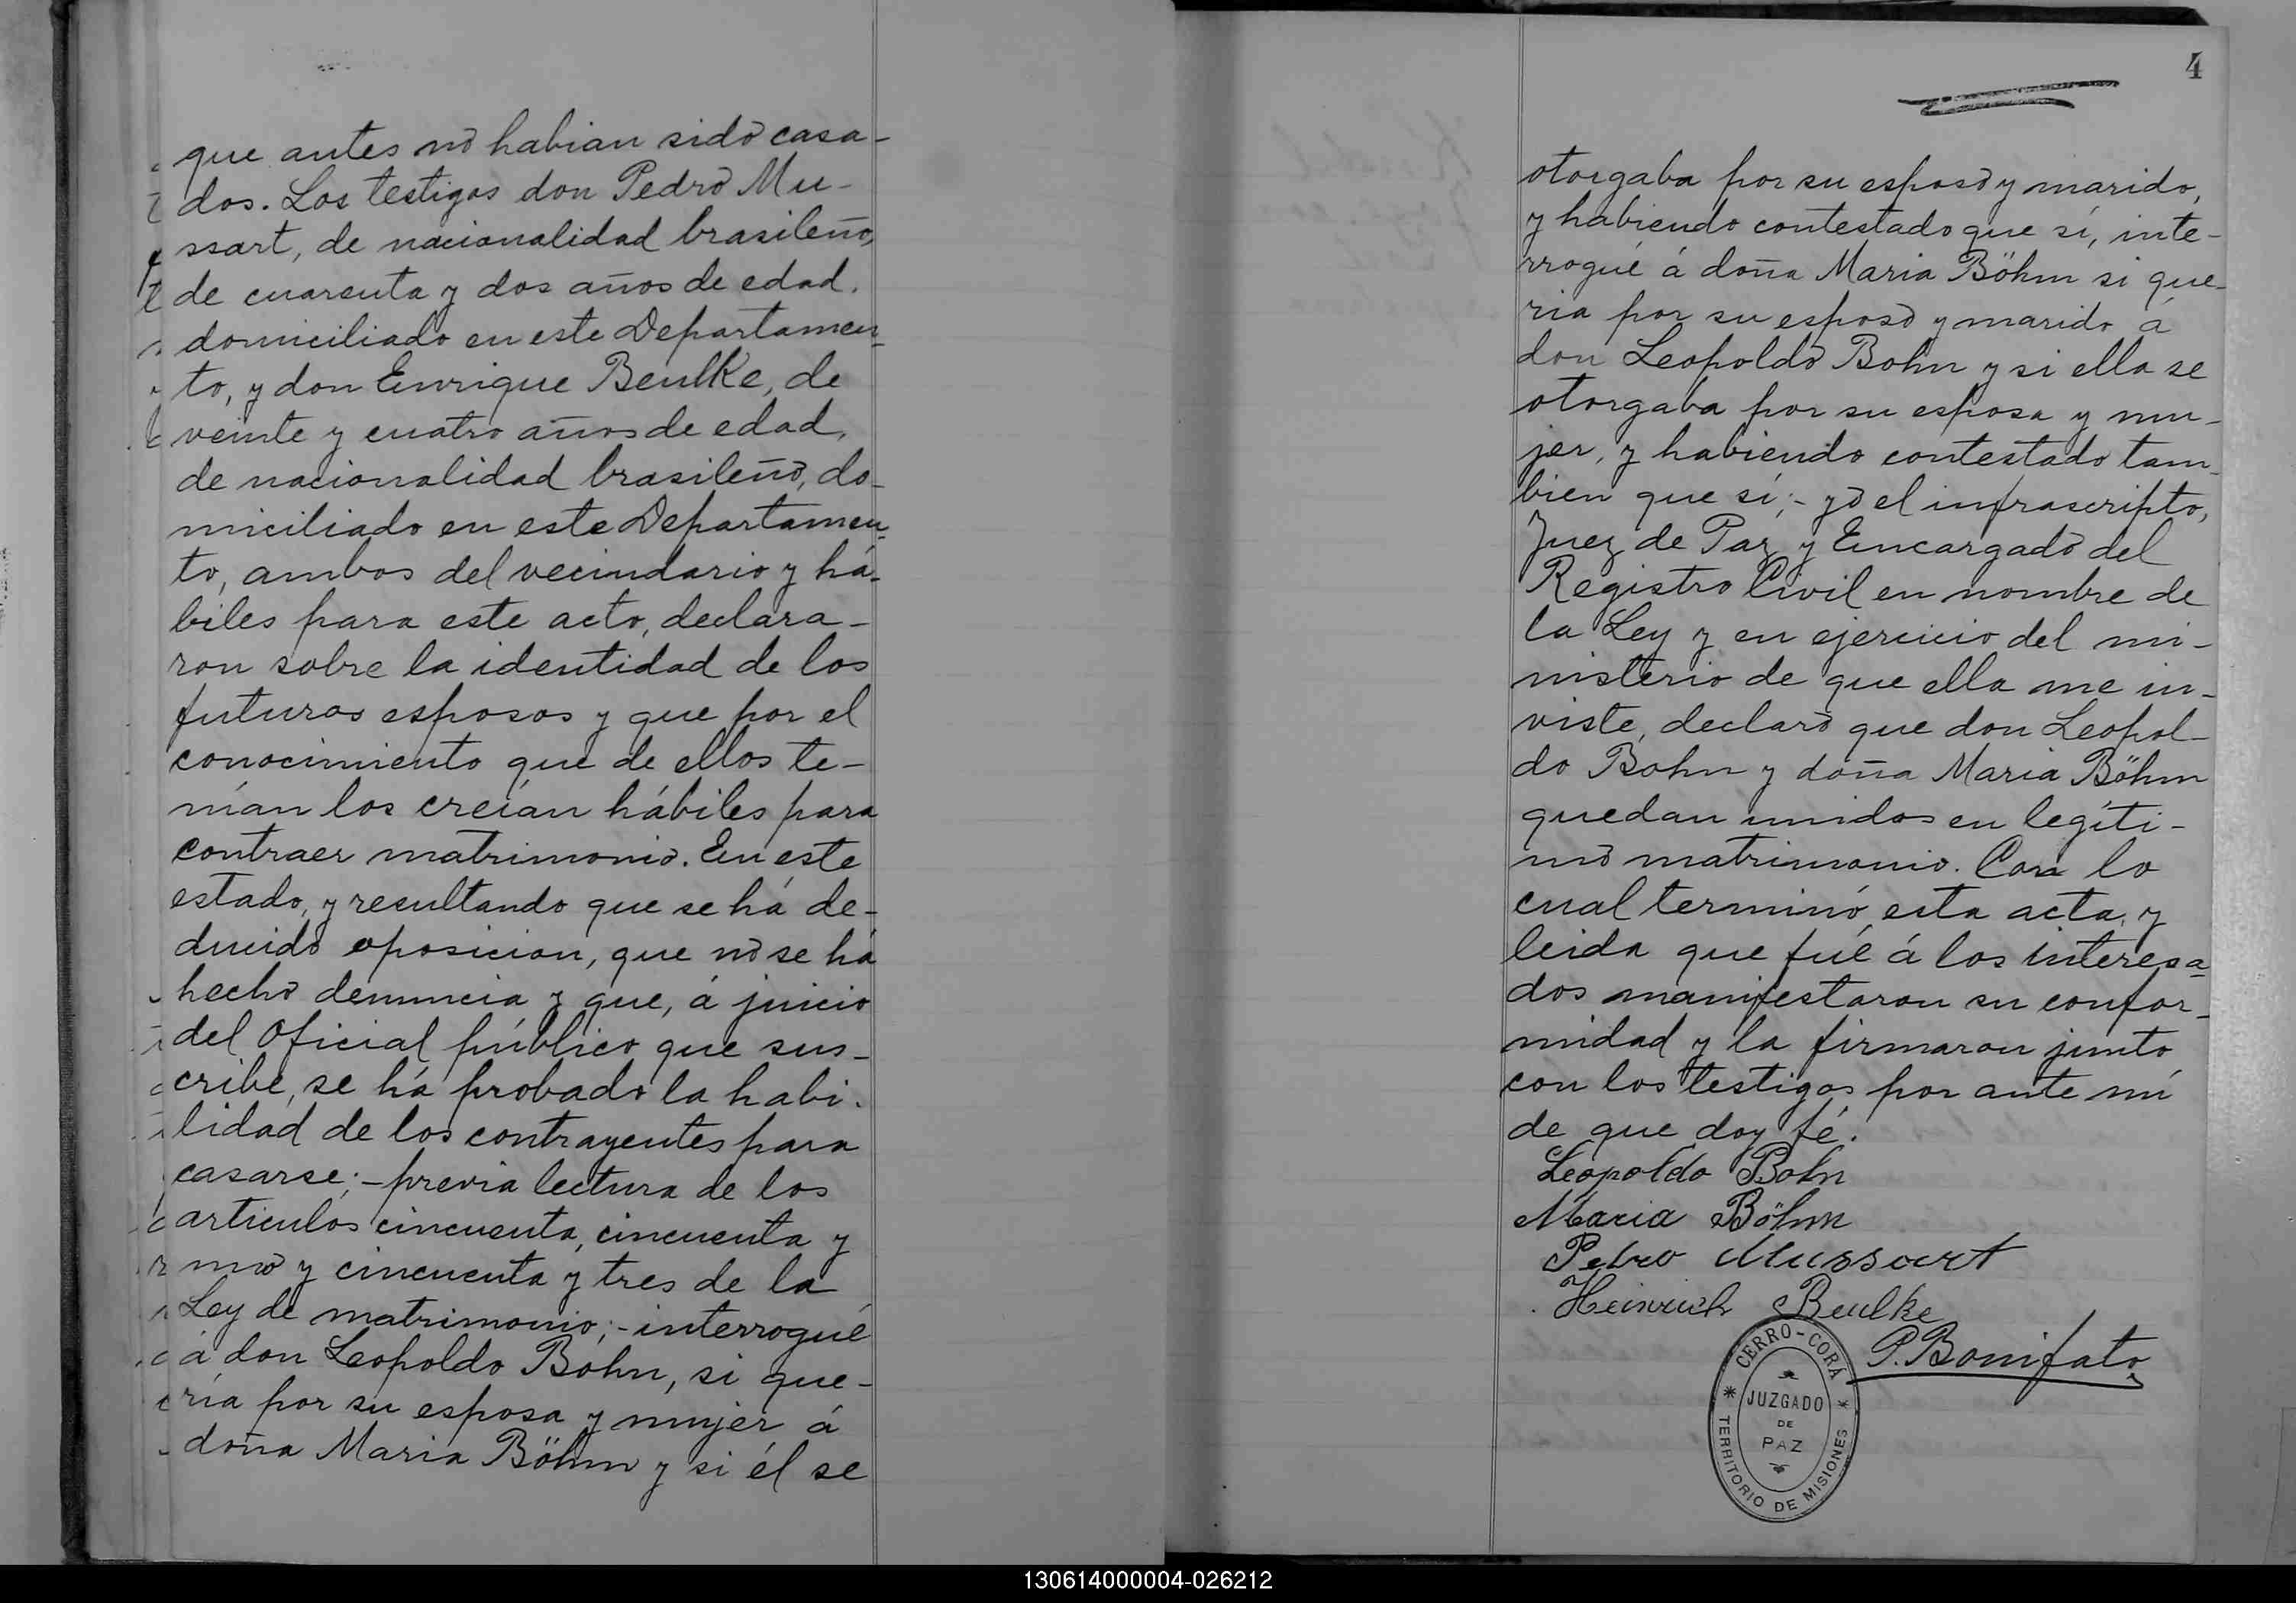 que antes no habian sido casa-
dos. Los testigos don Pedro Mu-
ssart, de nacionalidad brasileño,
de cuarenta y dos años de edad,
domiciliado en este Departamen-
to, y don Enrique Beulke, de
veinte y cuatro años de edad,
de nacionalidad brasileño, do-
miciliado en este Departamen-
to, ambos del vecindario y há-
biles para este acto, declara-
ron sobre la identidad de los
futuros esposos y que por el
conocimiento que de ellos te-
nían los creían hábiles para
contraer matrimonio. En este
estado, y resultando que se há de-
ducido oposicion, que no se há
hecho denuncia y que, á juicio
del Oficial público que sus-
cribe, se há probado la habi-
lidad de los contrayentes para
casarse;- previa lectura de los
articulos cincuenta, cincuenta y
uno y cincuenta y tres de la
Ley de matrimonio;- interrogué
á don Leopoldo Bohn, si que-
ría por su esposa y mujer á
doña Maria Böhm y si él se
4
otorgaba por su esposo y marido,
y habiendo contestado que sí, inte-
rrogué á doña Maria Böhm si que-
ria por su esposo y marido á
don Leopoldo Bohn y si ella se
otorgaba por su esposa y mu-
jer, y habiendo contestado tam-
bien que sí;- yo el infrascripto,
Juez de Paz y Encargado del
Registro Civil en nombre de
la Ley y en ejercicio del mi-
nisterio de que ella me in-
viste, declaro que don Leopol-
do Bohn y doña Maria Böhm
quedan unidos en legíti-
mo matrimonio. Con lo
cual terminó esta acta, y
leida que fué á los interesa-
dos manifestaron su confor-
midad y la firmaron junto
con los testigos por ante mí
de que doy fé.
Leopoldo Bohn
Maria Böhm
Pedro Mussart
Heinrich Beulke
P. Bonifato
CERRO-CORÁ
JUZGADO
DE
PAZ
TERRITORIO DE MISIONES
130614000004-026212